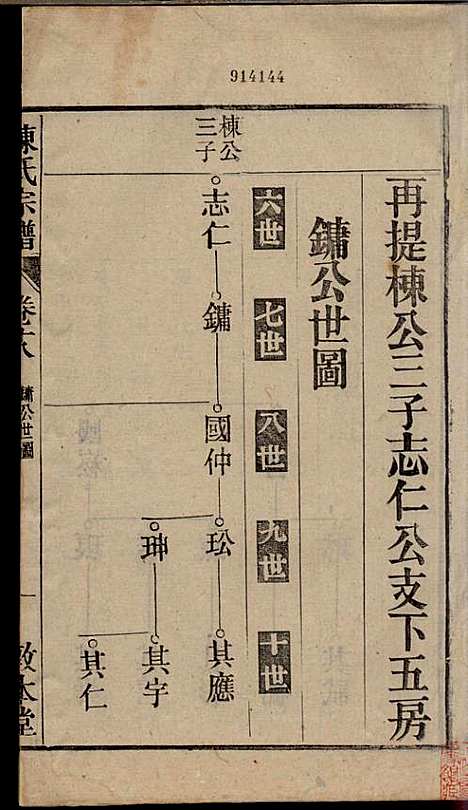 914144
再提棟公三子志仁公支下五房
鏞公世圖
六世 七世 八世 九世 十世
棟公
三子
志仁 鏞 國仲 玜 其應
珅 其宇
其仁
陳氏宗譜 卷 鏞公世圖 一 敦本堂